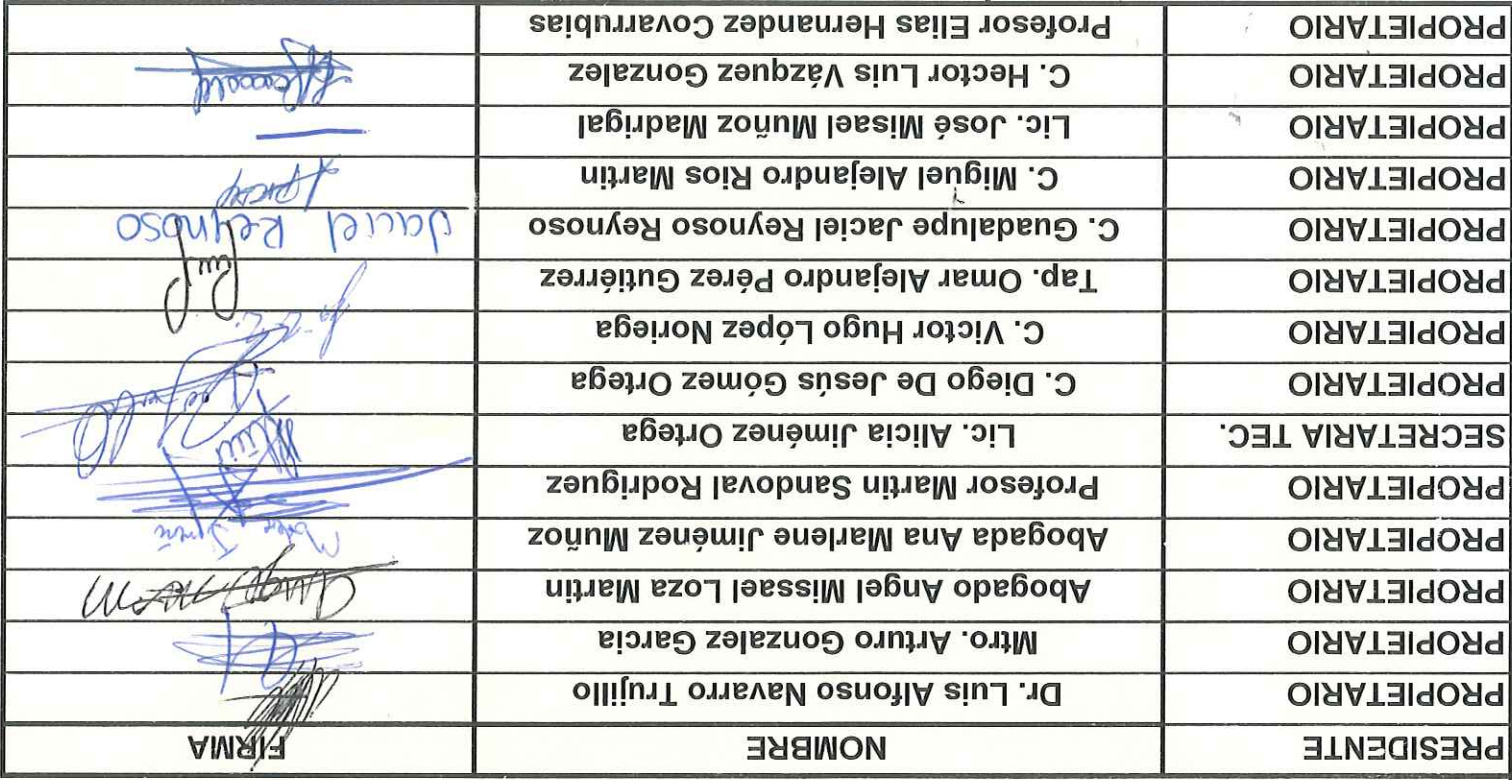 PRESIDENTE NOMBRE FIRMA
PROPIETARIO Dr. Luis Alfonso Navarro Trujillo
PROPIETARIO Mtro. Arturo Gonzalez Garcia
PROPIETARIO Abogado Angel Missael Loza Martin
PROPIETARIO Abogada Ana Marlene Jiménez Muñoz
PROPIETARIO Profesor Martin Sandoval Rodriguez
SECRETARIA TEC. Lic. Alicia Jiménez Ortega
PROPIETARIO C. Diego De Jesús Gómez Ortega
PROPIETARIO C. Victor Hugo López Noriega
PROPIETARIO Tap. Omar Alejandro Pérez Gutiérrez
PROPIETARIO C. Guadalupe Jaciel Reynoso Reynoso Jaciel Reynoso
PROPIETARIO C. Miguel Alejandro Rios Martin
PROPIETARIO Lic. José Misael Muñoz Madrigal
PROPIETARIO C. Hector Luis Vázquez Gonzalez
PROPIETARIO Profesor Elias Hernandez Covarrubias